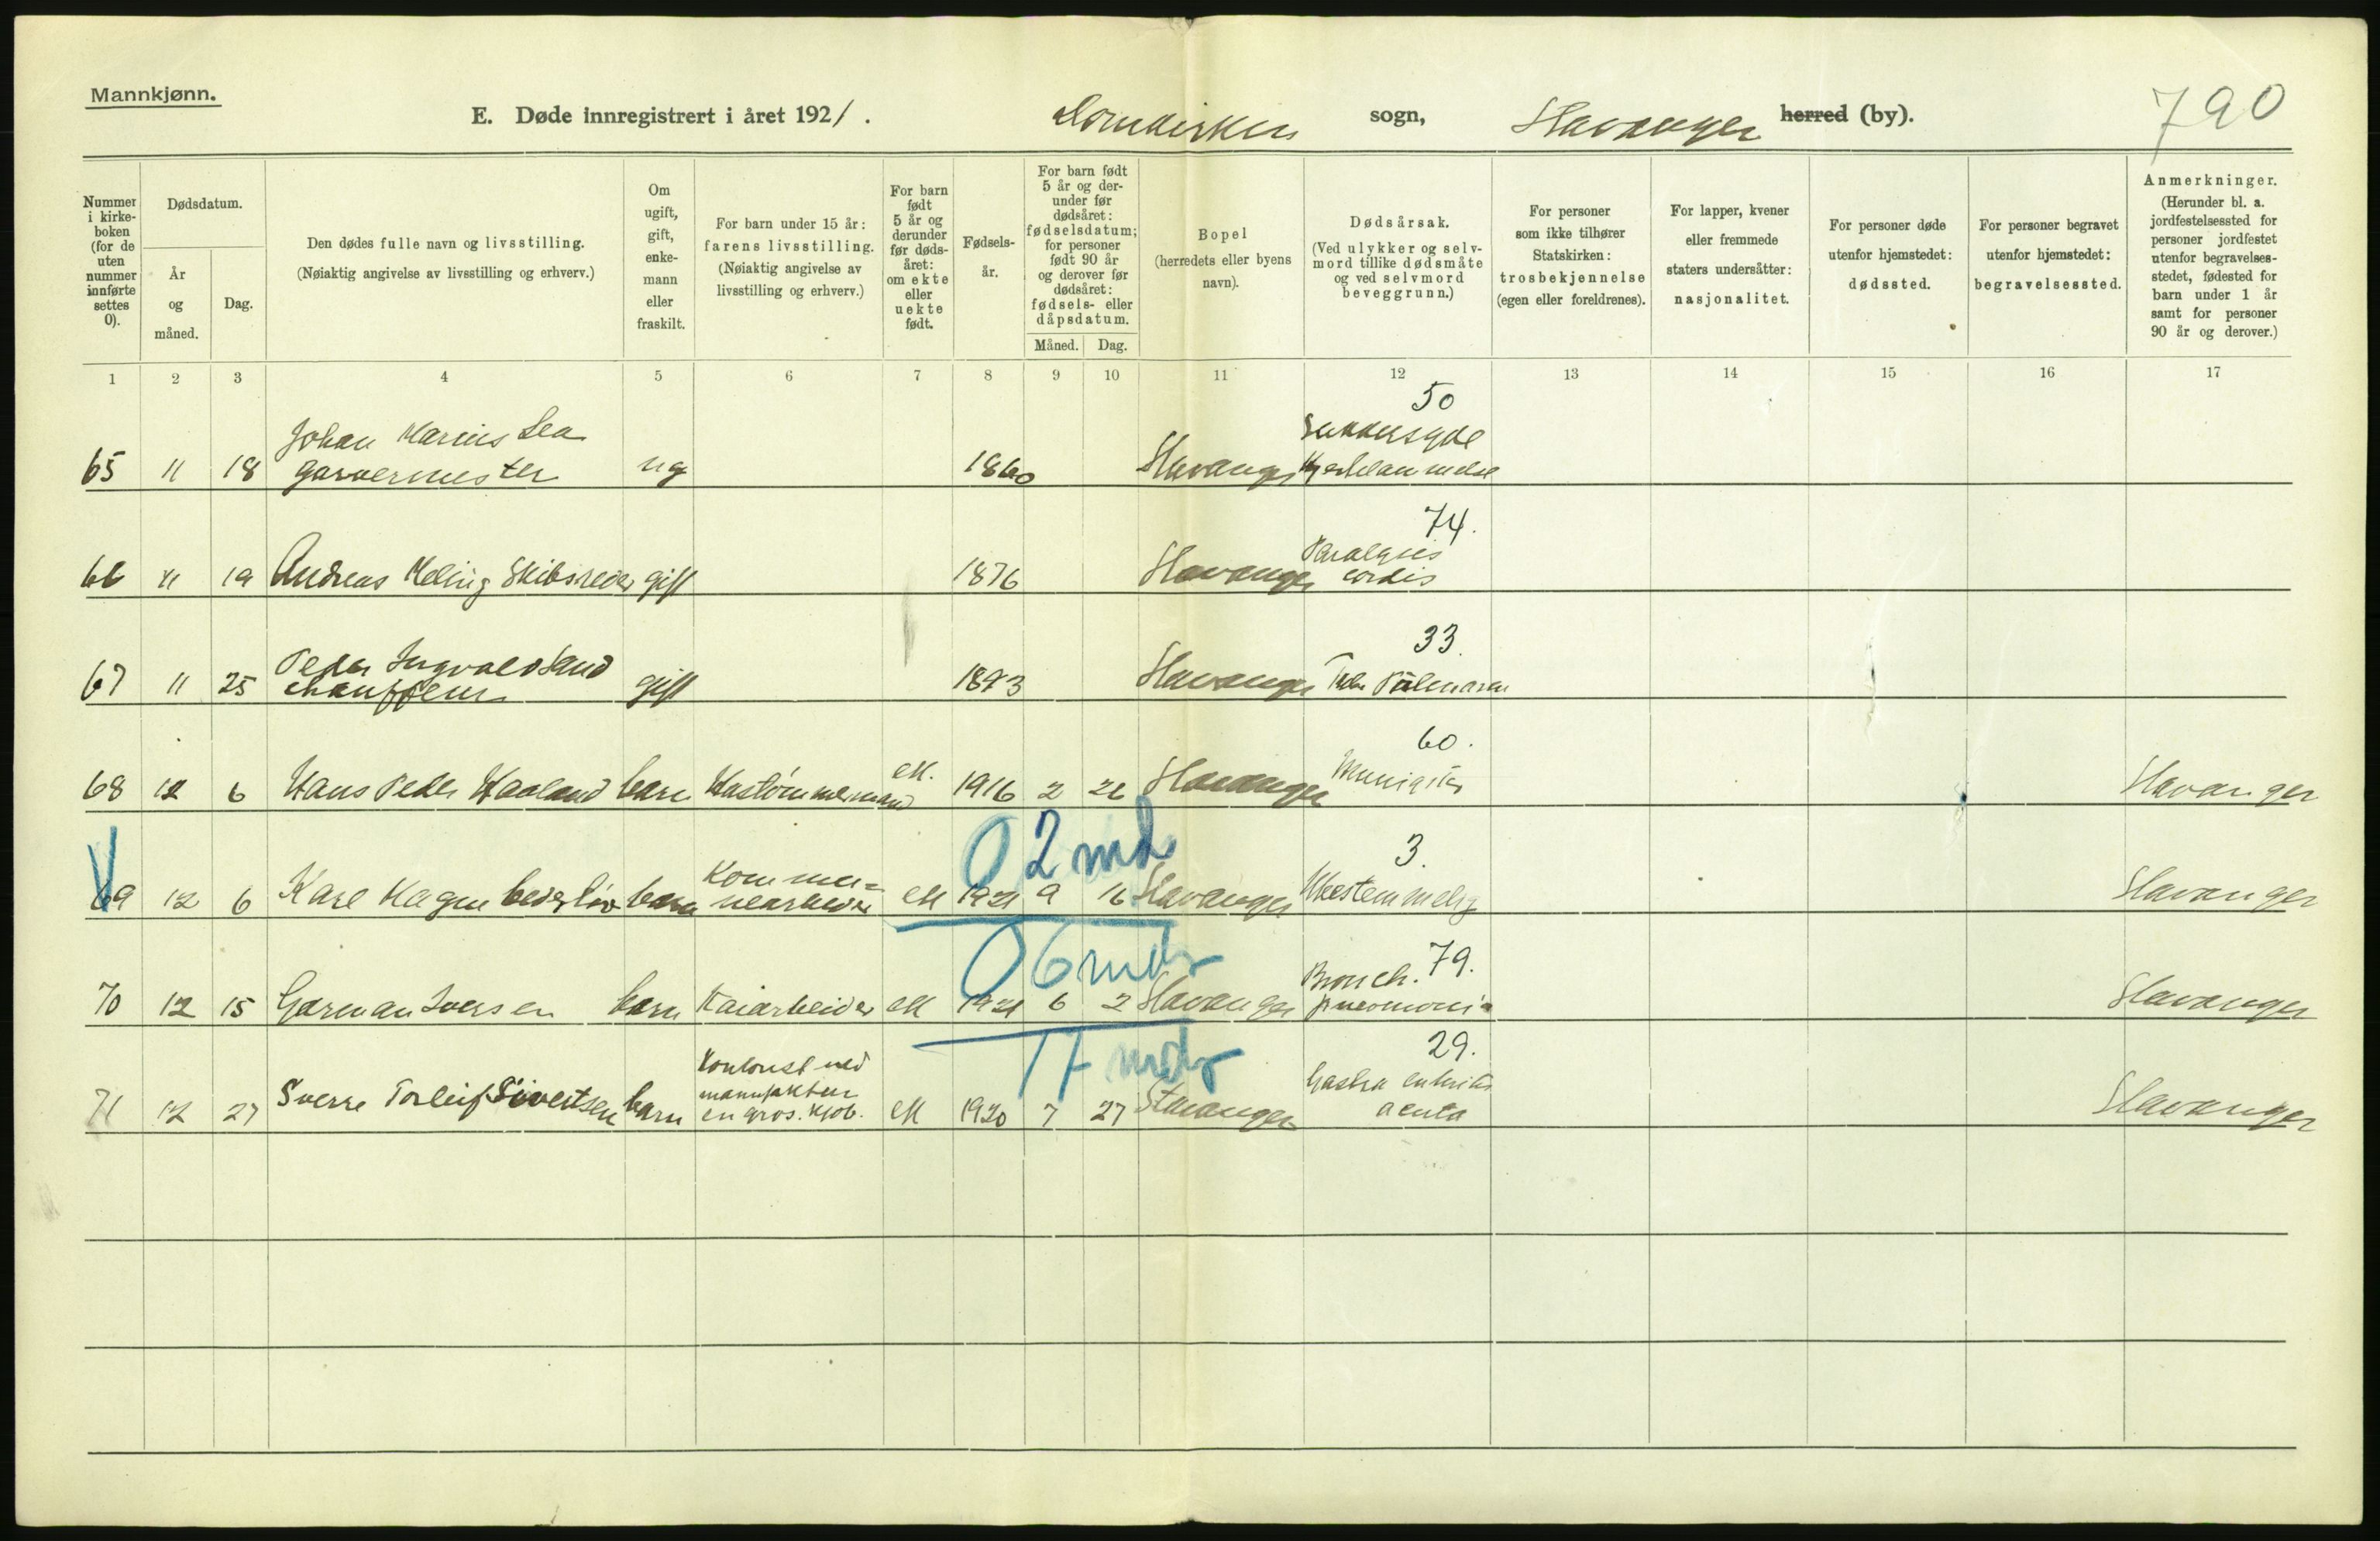 Mannkjønn.
E. Døde innregistrert i året 1921. Domkirken sogn, Stavanger herred (by). 790
Nummer i kirke-boken (for de uten nummer innførte settes 0).
Dødsdatum.
År og måned.
Dag.
Den dødes fulle navn og livsstilling.
(Nøiaktig angivelse av livsstilling og erhverv.)
Om ugift, gift, enke-mann eller fraskilt.
For barn under 15 år: farens livsstilling.
(Nøiaktig angivelse av livsstilling og erhverv.)
For barn født 5 år og derunder før døds-året: om ekte eller uekte født.
Fødsels-år.
For barn født 5 år og der-under før dødsåret: fødselsdatum; for personer født 90 år og derover før dødsåret: fødsels- eller dåpsdatum.
Måned. Dag.
Bopel
(herredets eller byens navn).
Dødsårsak.
(Ved ulykker og selv-mord tillike dødsmåte og ved selvmord beveggrunn.)
For personer som ikke tilhører Statskirken: trosbekjennelse (egen eller foreldrenes).
For lapper, kvener eller fremmede staters undersåtter: nasjonalitet.
For personer døde utenfor hjemstedet: dødssted.
For personer begravet utenfor hjemstedet: begravelsessted.
Anmerkninger.
(Herunder bl. a. jordfestelsessted for personer jordfestet utenfor begravelses-stedet, fødested for barn under 1 år samt for personer 90 år og derover.)
1 2 3 4 5 6 7 8 9 10 11 12 13 14 15 16 17
50
Johan Marius Lea Sukkersyke
65 11 18 garvermester ug 1860 Stavanger Hjertelammelse
74.
Paralysis
66 11 19 Andreas Meling Skibsreder gift 1876 Stavanger cordis
33.
Peder Ingvald Sand
67 11 25 chauffeur gift 1893 Stavanger Tub. Pulmonum
60.
68 12 6 Hans Peder Haaland barn Hustømmermand ek. 1916 2 22 Stavanger Meningitis Stavanger
0 2 md
3.
Kommu=
69 12 6 Karl Hagen barn nearbeider ek 1921 9 16 Stavanger Ubestemmelig Stavanger
0 6 mdr
79.
Bronch.
70 12 15 Garman Iversen barn Kaiarbeider ek 1921 6 2 Stavanger pneumoni Stavanger
17 mdr
29.
Kontorist ved
manufaktur Gastro enteritis
71 12 27 Sverre Torleif Sivertsen barn en gros. kjøb. ek 1920 7 27 Stavanger acuta Stavanger